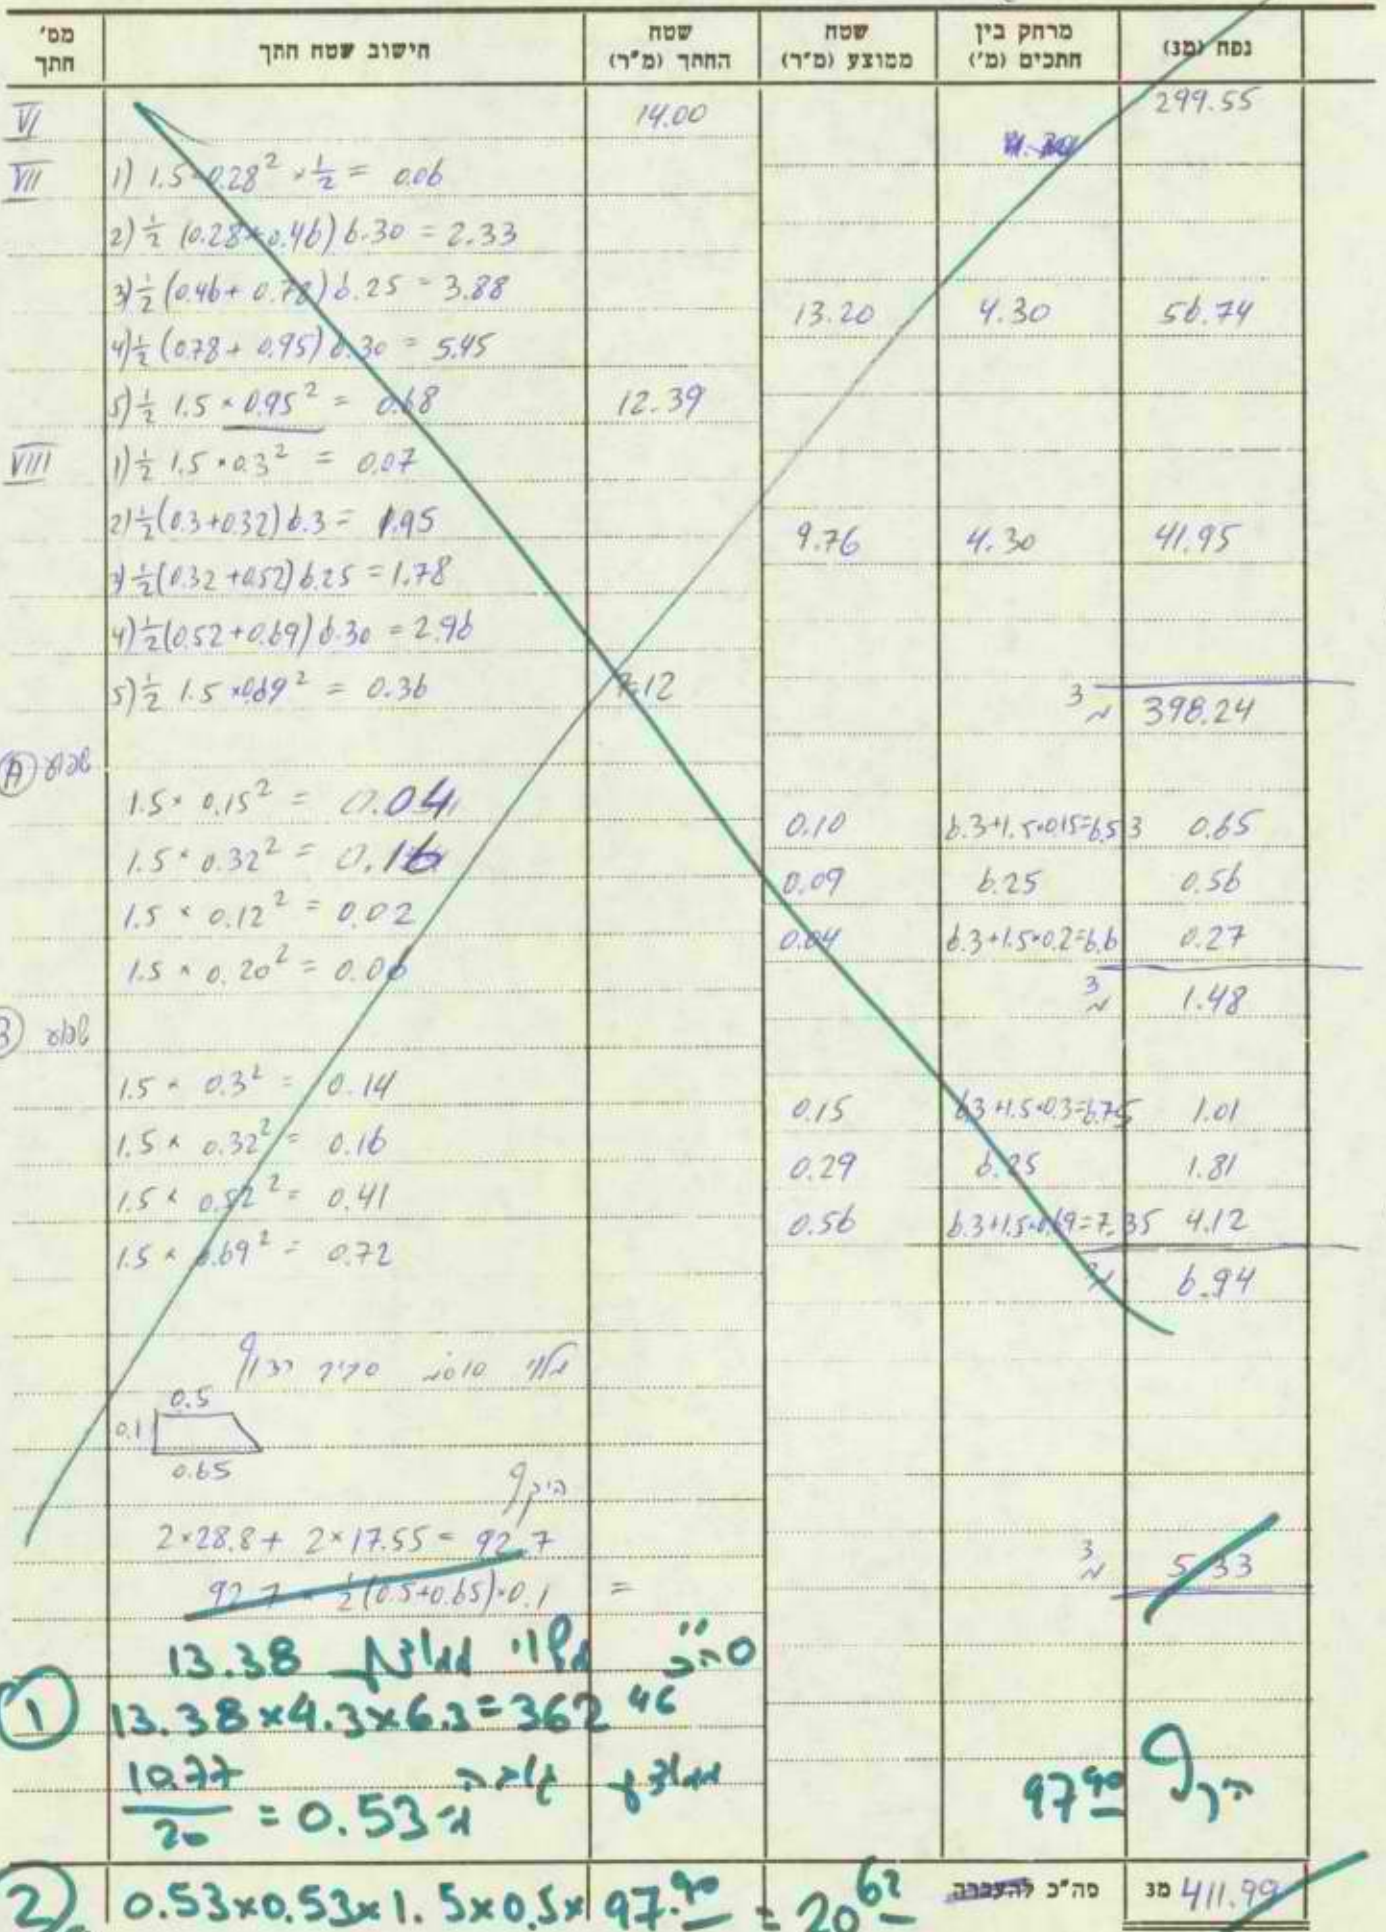 מס' חתך | חישוב שטח חתך | שטח החתך (מ"ר) | שטח ממוצע (מ"ר) | מרחק בין חתכים (מ') | נפח (מ3)
VI 14.00 299.55
VII 1) 1.5 × 0.28² × ½ = 0.06
2) ½ (0.28+0.46) 6.30 = 2.33
3) ½ (0.46 + 0.78) 6.25 = 3.88 13.20 4.30 56.74
4) ½ (0.78 + 0.95) 6.30 = 5.45
5) ½ 1.5 × 0.95² = 0.68 12.39
VIII 1) ½ 1.5 × 0.3² = 0.07
2) ½ (0.3+0.32) 6.3 = 1.95 9.76 4.30 41.95
3) ½ (0.32 + 0.52) 6.25 = 1.78
4) ½ (0.52 + 0.69) 6.30 = 2.96
5) ½ 1.5 × 0.69² = 0.36 7.12 מ3 398.24
A שפוע
1.5 × 0.15² = 0.04 0.10 6.3+1.5×0.15=6.53 0.65
1.5 × 0.32² = 0.16 0.09 6.25 0.56
1.5 × 0.12² = 0.02 0.04 6.3+1.5×0.2=6.6 0.27
1.5 × 0.20² = 0.06 מ3 1.48
B שפוע
1.5 × 0.3² = 0.14 0.15 6.3+1.5×0.3=6.75 1.01
1.5 × 0.32² = 0.16 0.29 6.25 1.81
1.5 × 0.52² = 0.41 0.56 6.3+1.5×0.69=7.35 4.12
1.5 × 0.69² = 0.72 מ3 6.94
מלוי סביב
0.5
0.1
0.65
היקף
2×28.8 + 2×17.55 = 92.7
92.7 × ½ (0.5+0.65)×0.1 = מ3 5.33
סה"כ מלוי ממוצע 13.38
1 13.38×4.3×6.3=362 46
ממוצע גובה 10.77/20 = 0.53 מ' היקף 97 90
2 0.53×0.53×1.5×0.5×97.90 = 20 62 סה"כ להעברה מ3 411.99